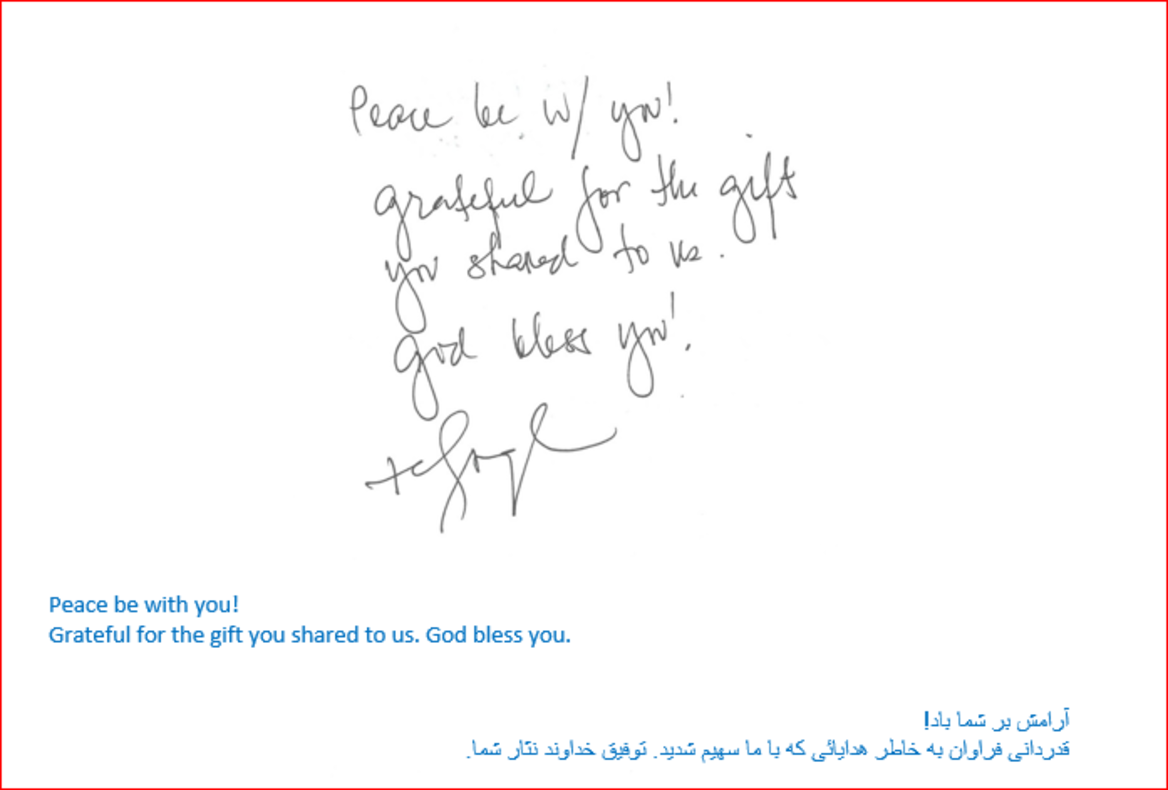 Peace be w/ you!
grateful for the gift
you shared to us.
God bless you!
Peace be with you!
Grateful for the gift you shared to us. God bless you.
آرامش بر شما باد!
قدردانی فراوان به خاطر هدایائی که با ما سهیم شدید. توفیق خداوند نثار شما.